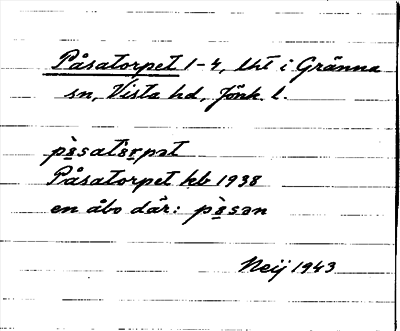 Påsatorpet 1-4, lht i Gränna
sn, Vista hd, Jönk. l.
påsatårpət
Påsatorpet hb 1938
en åbo där: påsən
Neij 1943